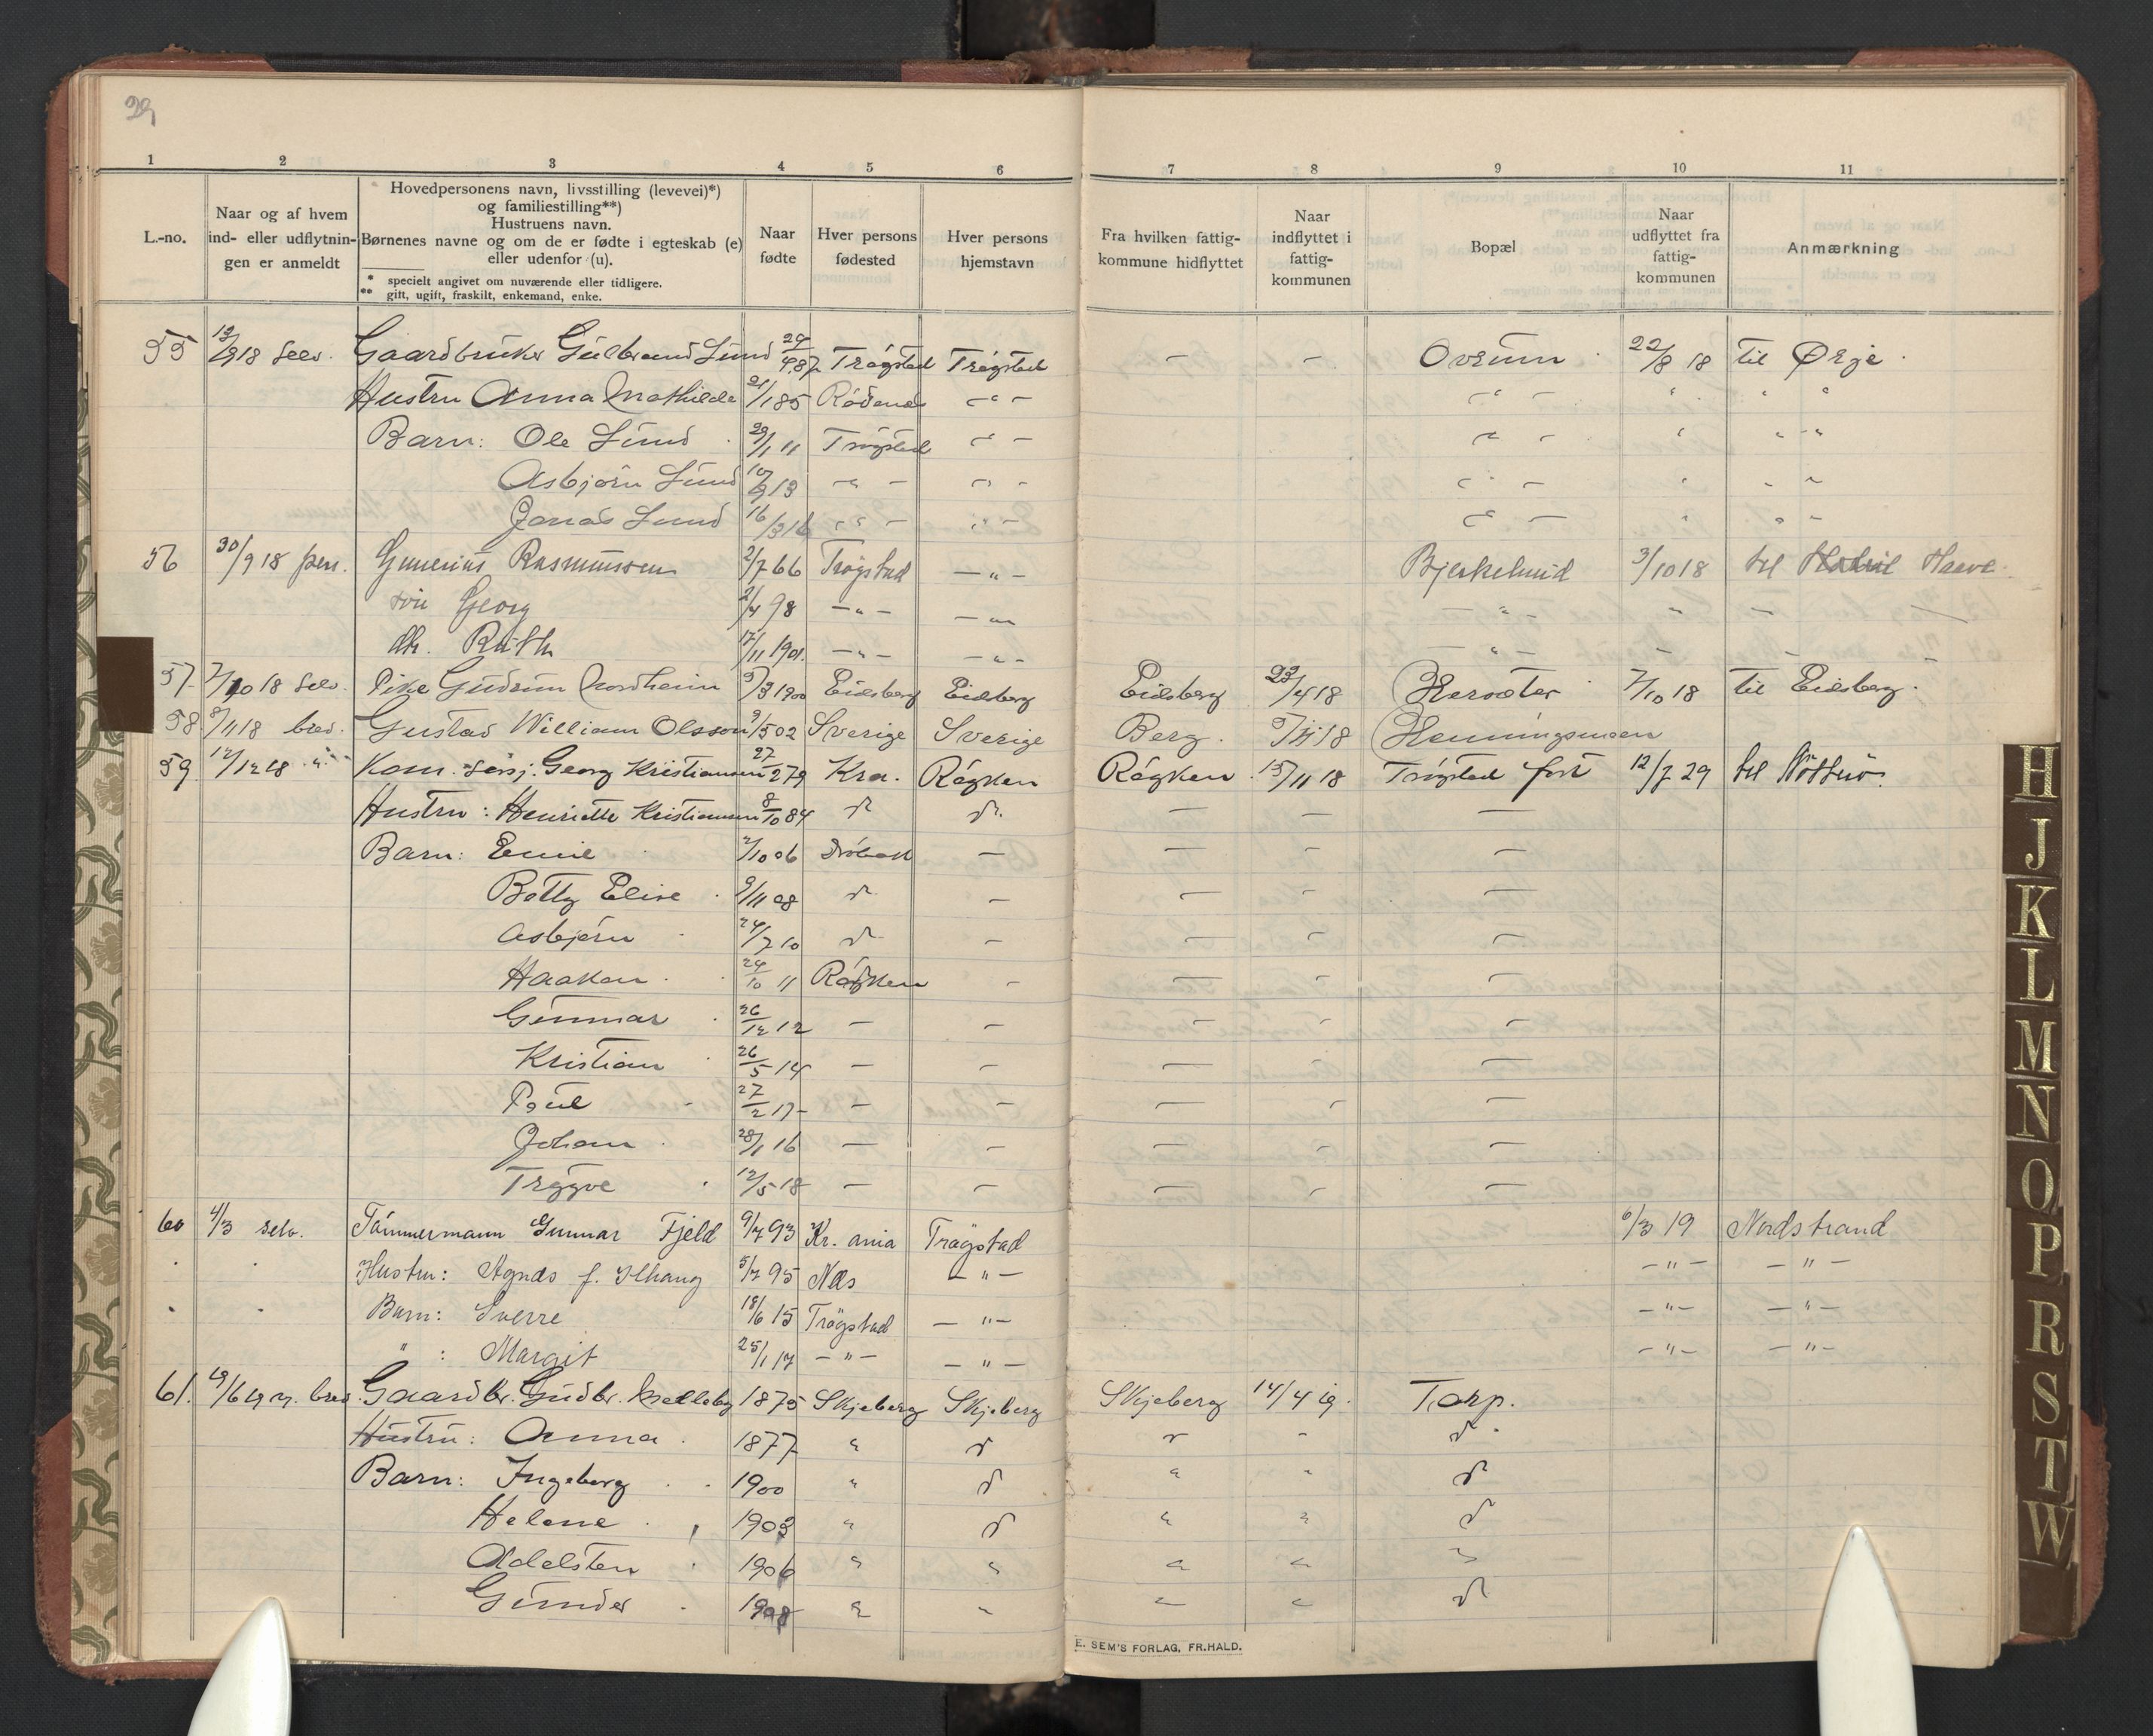 29
1 2 3 4 5 6 7 8 9 10 11
L.-no.
Naar og af hvem
ind- eller udflytnin-
gen er anmeldt
Hovedpersonens navn, livsstilling (levevei)*)
og familiestilling**)
Hustruens navn.
Børnenes navne og om de er fødte i egteskab (e)
eller udenfor (u).
* specielt angivet om nuværende eller tidligere.
** gift, ugift, fraskilt, enkemand, enke.
Naar
fødte
Hver persons
fødested
Hver persons
hjemstavn
Fra hvilken fattig-
kommune hidflyttet
Naar
indflyttet i
fattig-
kommunen
Bopæl
Naar
udflyttet fra
fattig-
kommunen
Anmærkning
55 selv. Gaardbruker Gulbrand Lund 29/4 87 Trøgstad Trøgstad — — Ovrum 22/8 18 til Ørje
Hustru Anna Mathilde 21/1 85 Rødenes — " —
Barn: Ole Lund 29/1 11 Trøgstad — " —
Asbjørn Lund 10/9 13 — " — — " —
Jonas Lund 16/3 16 — " — — " —
56 30/9 18 pers. Gunerius Rasmussen 2/7 66 Trøgstad — " — Bjerkelund 3/10 18 til Haave
søn Georg 2/4 98 — " — — " —
dtr. Ruth 17/11 1901. — " — — " —
57. 7/10 18 selv. Pike Gudrun Nordheim 5/3 1900 Eidsberg Eidsberg Eidsberg 23/4 18 Hersæter 7/10 18 til Eidsberg.
58 8/11 18 brev. Gustav William Olsson 9/5 02 Sverige Sverige Berg. Henningsmoen
59. 12/12 18 " Kom. sersj. Georg Kristiansen 27/2 79 Kra. Røyken Røyken 15/11 18 Trøgstad fort 12/7 29 til Nøtterø.
Hustru: Henriette Kristiansen 8/10 84 d d. — — —
Barn: Emil 2/10 06 Drøbak — — — —
Betty Elise 9/11 08 d — — — —
Asbjørn 24/7 10 d — — — —
Haakon 24/10 11 Røyken — — — —
Gunnar 26/12 12 — — — — —
Kristian 26/5 14 — — — — —
Paul 27/2 17 — — — — —
Johan 28/1 16 — — — — —
Trygve 12/5 18 — — — — —
60 4/3 selv. Tømmermann Gunnar Fjeld 9/7 93 Kr. ania Trøgstad 6/3 19 Nordstrand
Hustru: Agnes f. 5/7 95 Nes — " — — " — — " —
Barn: Sverre 18/6 15 Trøgstad — " — — " — — " —
" : Margit 25/1 17 — " — — " — — " — — " —
61. brev Gaardbr. Gudbr. Melleby 1875 Skjeberg Skjeberg Skjeberg 14/4 19. Torp.
Hustru: Anna 1877 " d " " d
Barn: Ingeborg 1900 " d " " d
Helene 1903 " d " " d
Adelsten 1906 " " " " "
Gunder 1908 " " " " d
E. SEM'S FORLAG, FR.HALD.
H
J
K
L
M
N
O
P
R
S
T
W